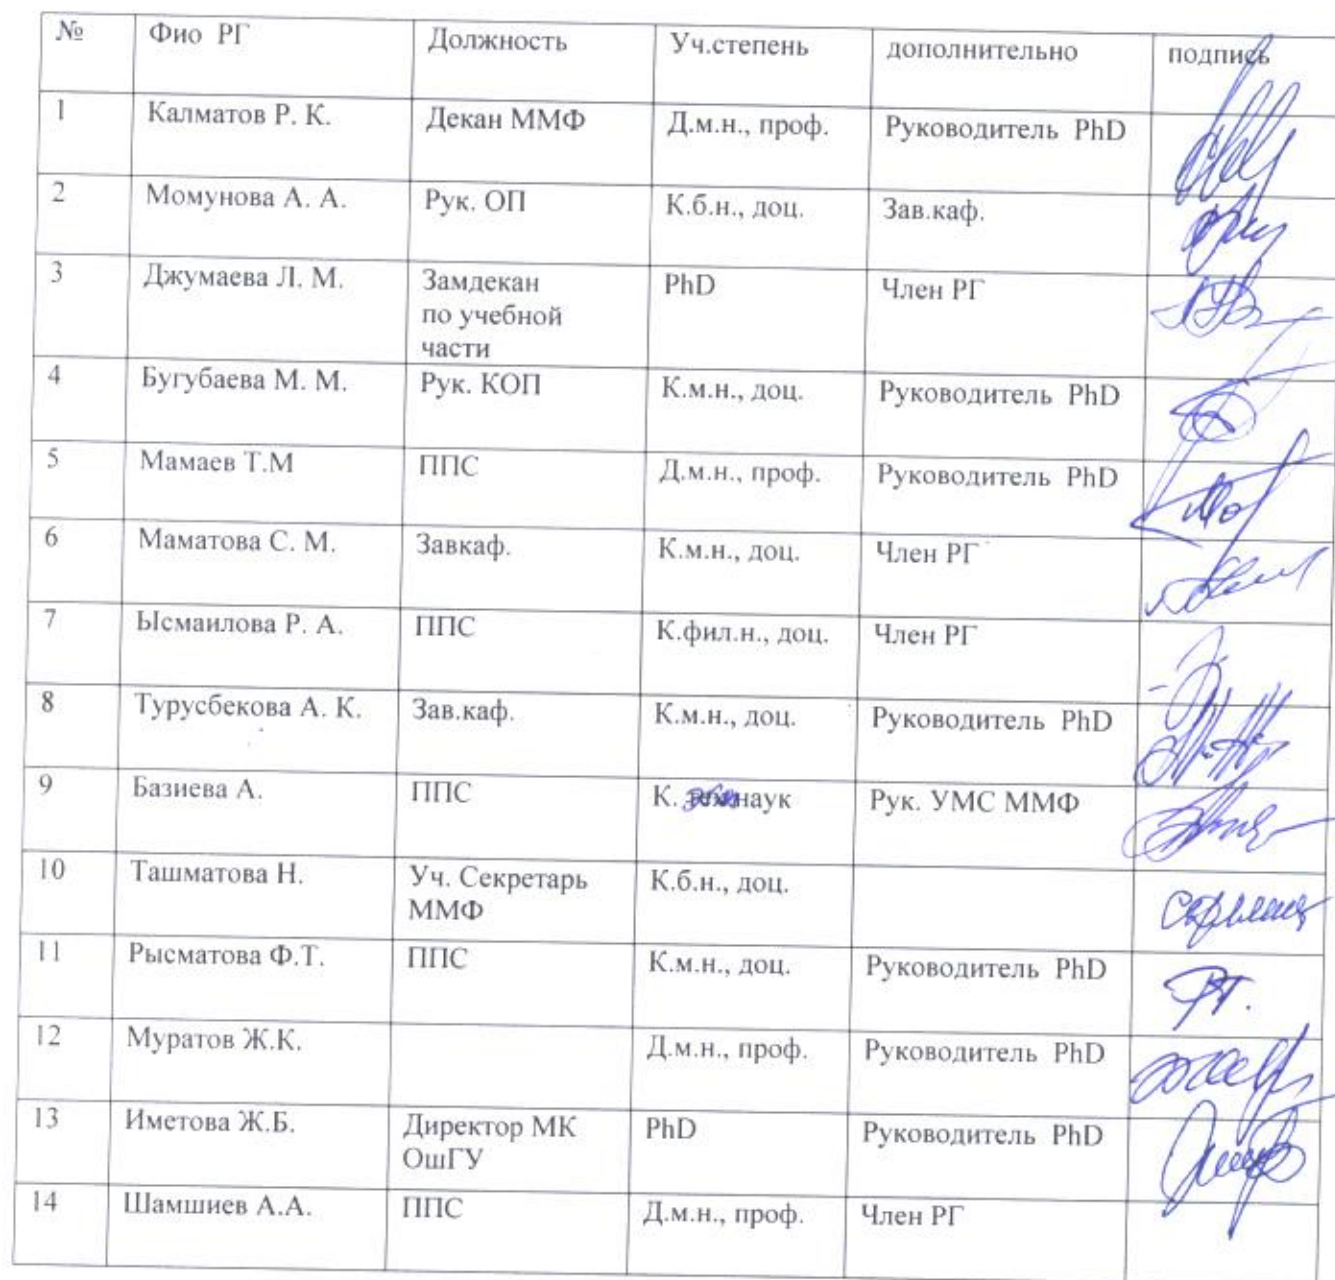 № Фио РГ Должность Уч.степень дополнительно подпись
1 Калматов Р. К. Декан ММФ Д.м.н., проф. Руководитель PhD
2 Момунова А. А. Рук. ОП К.б.н., доц. Зав.каф.
3 Джумаева Л. М. Замдекан PhD Член РГ
по учебной
части
4 Бугубаева М. М. Рук. КОП К.м.н., доц. Руководитель PhD
5 Мамаев Т.М ППС Д.м.н., проф. Руководитель PhD
6 Маматова С. М. Завкаф. К.м.н., доц. Член РГ
7 Ысмаилова Р. А. ППС К.фил.н., доц. Член РГ
8 Турусбекова А. К. Зав.каф. К.м.н., доц. Руководитель PhD
9 Базиева А. ППС К. наук Рук. УМС ММФ
10 Ташматова Н. Уч. Секретарь К.б.н., доц.
ММФ
11 Рысматова Ф.Т. ППС К.м.н., доц. Руководитель PhD
12 Муратов Ж.К. Д.м.н., проф. Руководитель PhD
13 Иметова Ж.Б. Директор МК PhD Руководитель PhD
ОшГУ
14 Шамшиев А.А. ППС Д.м.н., проф. Член РГ